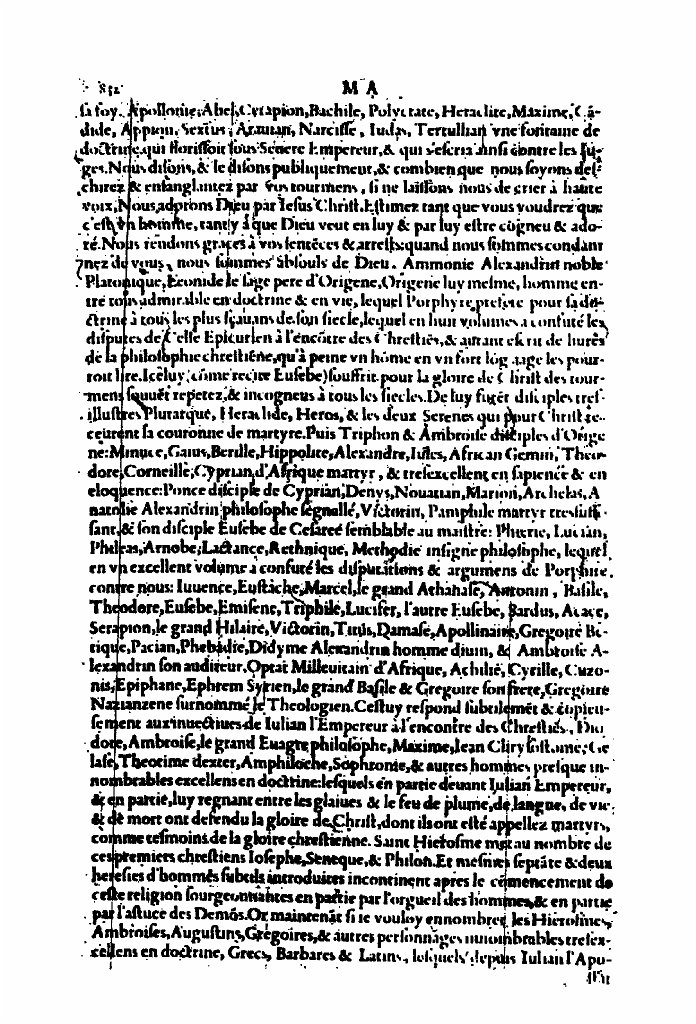 832 M A
sa foy. Apollonie, Abel, Cerapion, Bachile, Polycrate, Heraclite, Maxime, Cā-
dide, Appion, Sextus, Narcisse, Iudas, Tertullian vne fontaine de
doctrine, qui florissoit sous Seuere Empereur, & qui s'escria ainsi contre les Iu-
ges. Nous disons, & le disons publiquement, & combien que nous soyons des-
chirez & ensanglantez par vos tourmens, si ne laissons nous de crier à haute
voix, Nous adorons Dieu par Iesus Christ. Estimez tant que vous voudrez que
c'est vn homme, tant y à que Dieu veut en luy & par luy estre cōgneu & ado-
ré. Nous rendons graces à vos sentēces & arrests: quand nous sommes condam
nez de vous, nous sommes absouls de Dieu. Ammonie Alexandrin noble
Platonique, Leonide le sage pere d'Origene, Origene luy mesme, homme en-
tre tous admirable en doctrine & en vie, lequel Porphyre prefere pour sa do-
ctrine à tous les plus sçauans de son siecle, lequel en huit volumes a confuté les
disputes de Celse Epicurien à l'encōtre des Chrestiēs, & autant escrit de liures
de la philosophie chrestiēne, qu'à peine vn hōme en vn fort lōg aage les pour-
roit lire. Iceluy (cōme recite Eusebe) souffrit pour la gloire de Christ des tour-
mens souuēt repetez, & incogneus à tous les siecles. De luy furēt disciples tres-
illustres Plutarque, Heraclide, Heros, & les deux Serenes qui pour Christ re-
ceurent sa couronne de martyre. Puis Triphon & Ambroise disciples d'Orige
ne: Minuce, Gaius, Berille, Hippolite, Alexandre, Iules, African Gemin, Theo-
dore, Corneille, Cyprian d'Afrique martyr, & tresexcellent en sapience & en
eloquence: Ponce disciple de Cyprian, Denys, Nouatian, Marion, Archelas, A
natolie Alexandrin philosophe segnallé, Victorin, Pamphile martyr tressuffi-
sant, & son disciple Eusebe de Cesareé semblable au maistre: Pherie, Lucian,
Phileas, Arnobe, Lactance, Rethnique, Methodie insigne philosophe, lequel
en vn excellent volume a confuté les disputations & argumens de Porphire
contre nous: Iuuence, Eustache, Marcel, le grand Athanase, Antonin, Basile,
Theodore, Eusebe, Emisene, Triphile, Lucifer, l'autre Eusebe, Bardus, Acace,
Serapion, le grand Hilaire, Victorin, Titus, Damase, Apollinaire, Gregoire Be-
tique, Pacian, Phebadie, Didyme Alexandrin homme diuin, & Ambroise A-
lexandrin son auditeur, Optat Mileuitain d'Afrique, Achilie, Cyrille, Cuzo-
nis, Epiphane, Ephrem Syrien, le grand Basile & Gregoire son frere, Gregoire
Nazianzene surnommé le Theologien. Cestuy respond subtilemēt & copieu-
sement aux inuectiues de Iulian l'Empereur à l'encontre des Chrestiēs, Dio
dore, Ambroise, le grand Euagre philosophe, Maxime, Iean Chrysostome, Ge
lase, Theotime dexter, Amphiloche, Sophronie, & autres hommes presque in-
nombrables excellens en doctrine: lesquels en partie deuant Iulian Empereur,
& en partie, luy regnant entre les glaiues & le feu de plume, de langue, de vie
& de mort ont defendu la gloire de Christ, dont ils ont esté appellez martyrs,
comme tesmoins de la gloire chrestienne. Saint Hierosme met au nombre de
ces premiers chrestiens Iosephe, Seneque, & Philon. Et mesmes septāte & deux
heresies d'hommes subtils introduites incontinent apres le cōmencement de
ceste religion sourgeonnantes en partie par l'orgueil des hommes, & en partie
par l'astuce des Demōs. Or maintenāt si ie vouloy ennombrer les Hierosmes,
Ambroises, Augustins, Gregoires, & autres personnages innombrables tresex-
cellens en doctrine, Grecs, Barbares & Latins, lesquels depuis Iulian l'Apo-
stat